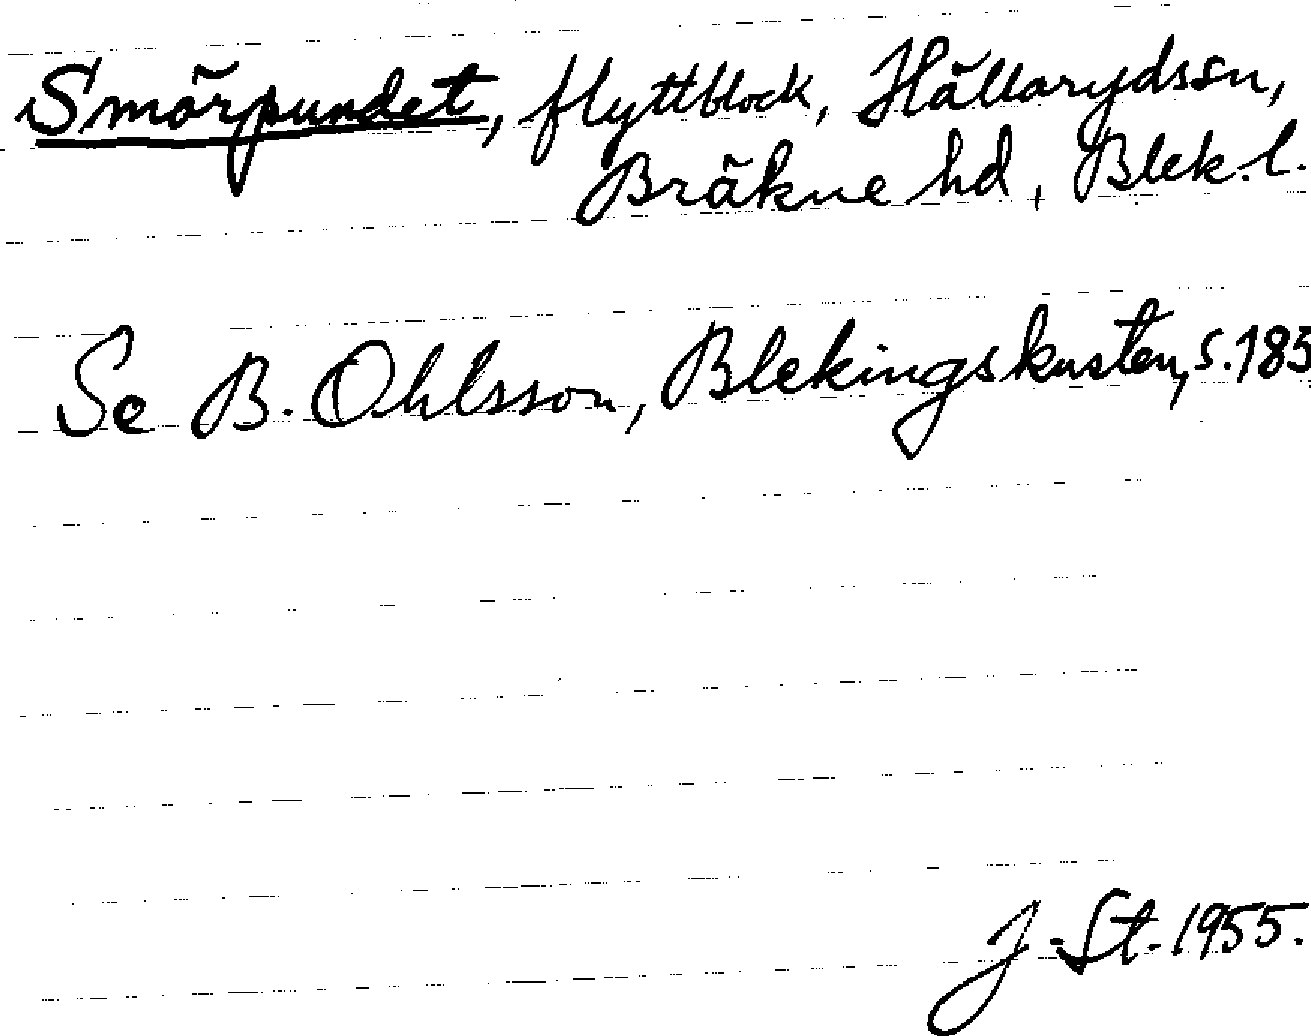 Smörpundet, flyttblock, Hällarydssn,
Bräkne hd, Blek. l.
Se B. Ohlsson, Blekingskusten, s. 183
J. St. 1955.